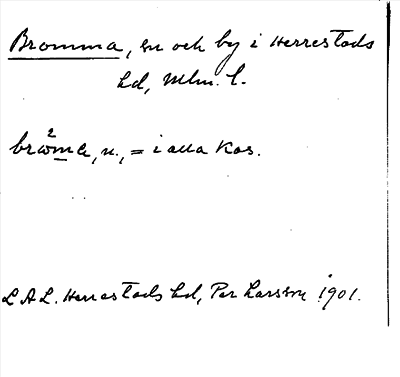 Bromma, sn och by i Herrestads
hd, Mlm. l.
2
bråma, n., = i alla Kas.
LAL. Herrestads hd, Per Larsson 1901.